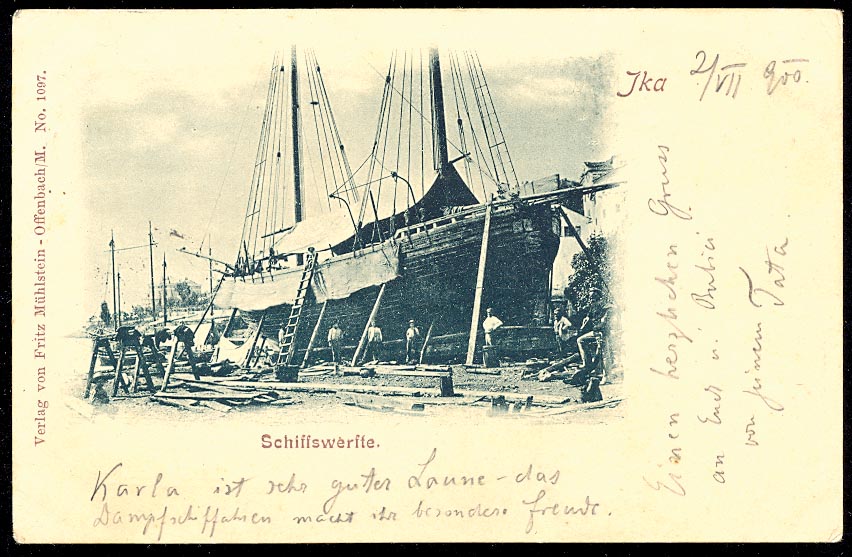 Ika 2/VII 900.
Verlag von Fritz Mühlstein - Offenbach/M. No. 1097.
Schiffswerfte.
Karla ist sehr guter Laune - das
Dampfschiffahren macht ihr besondere Freude.
Einen herzlichen Gruss
an Euch u.
von Tata